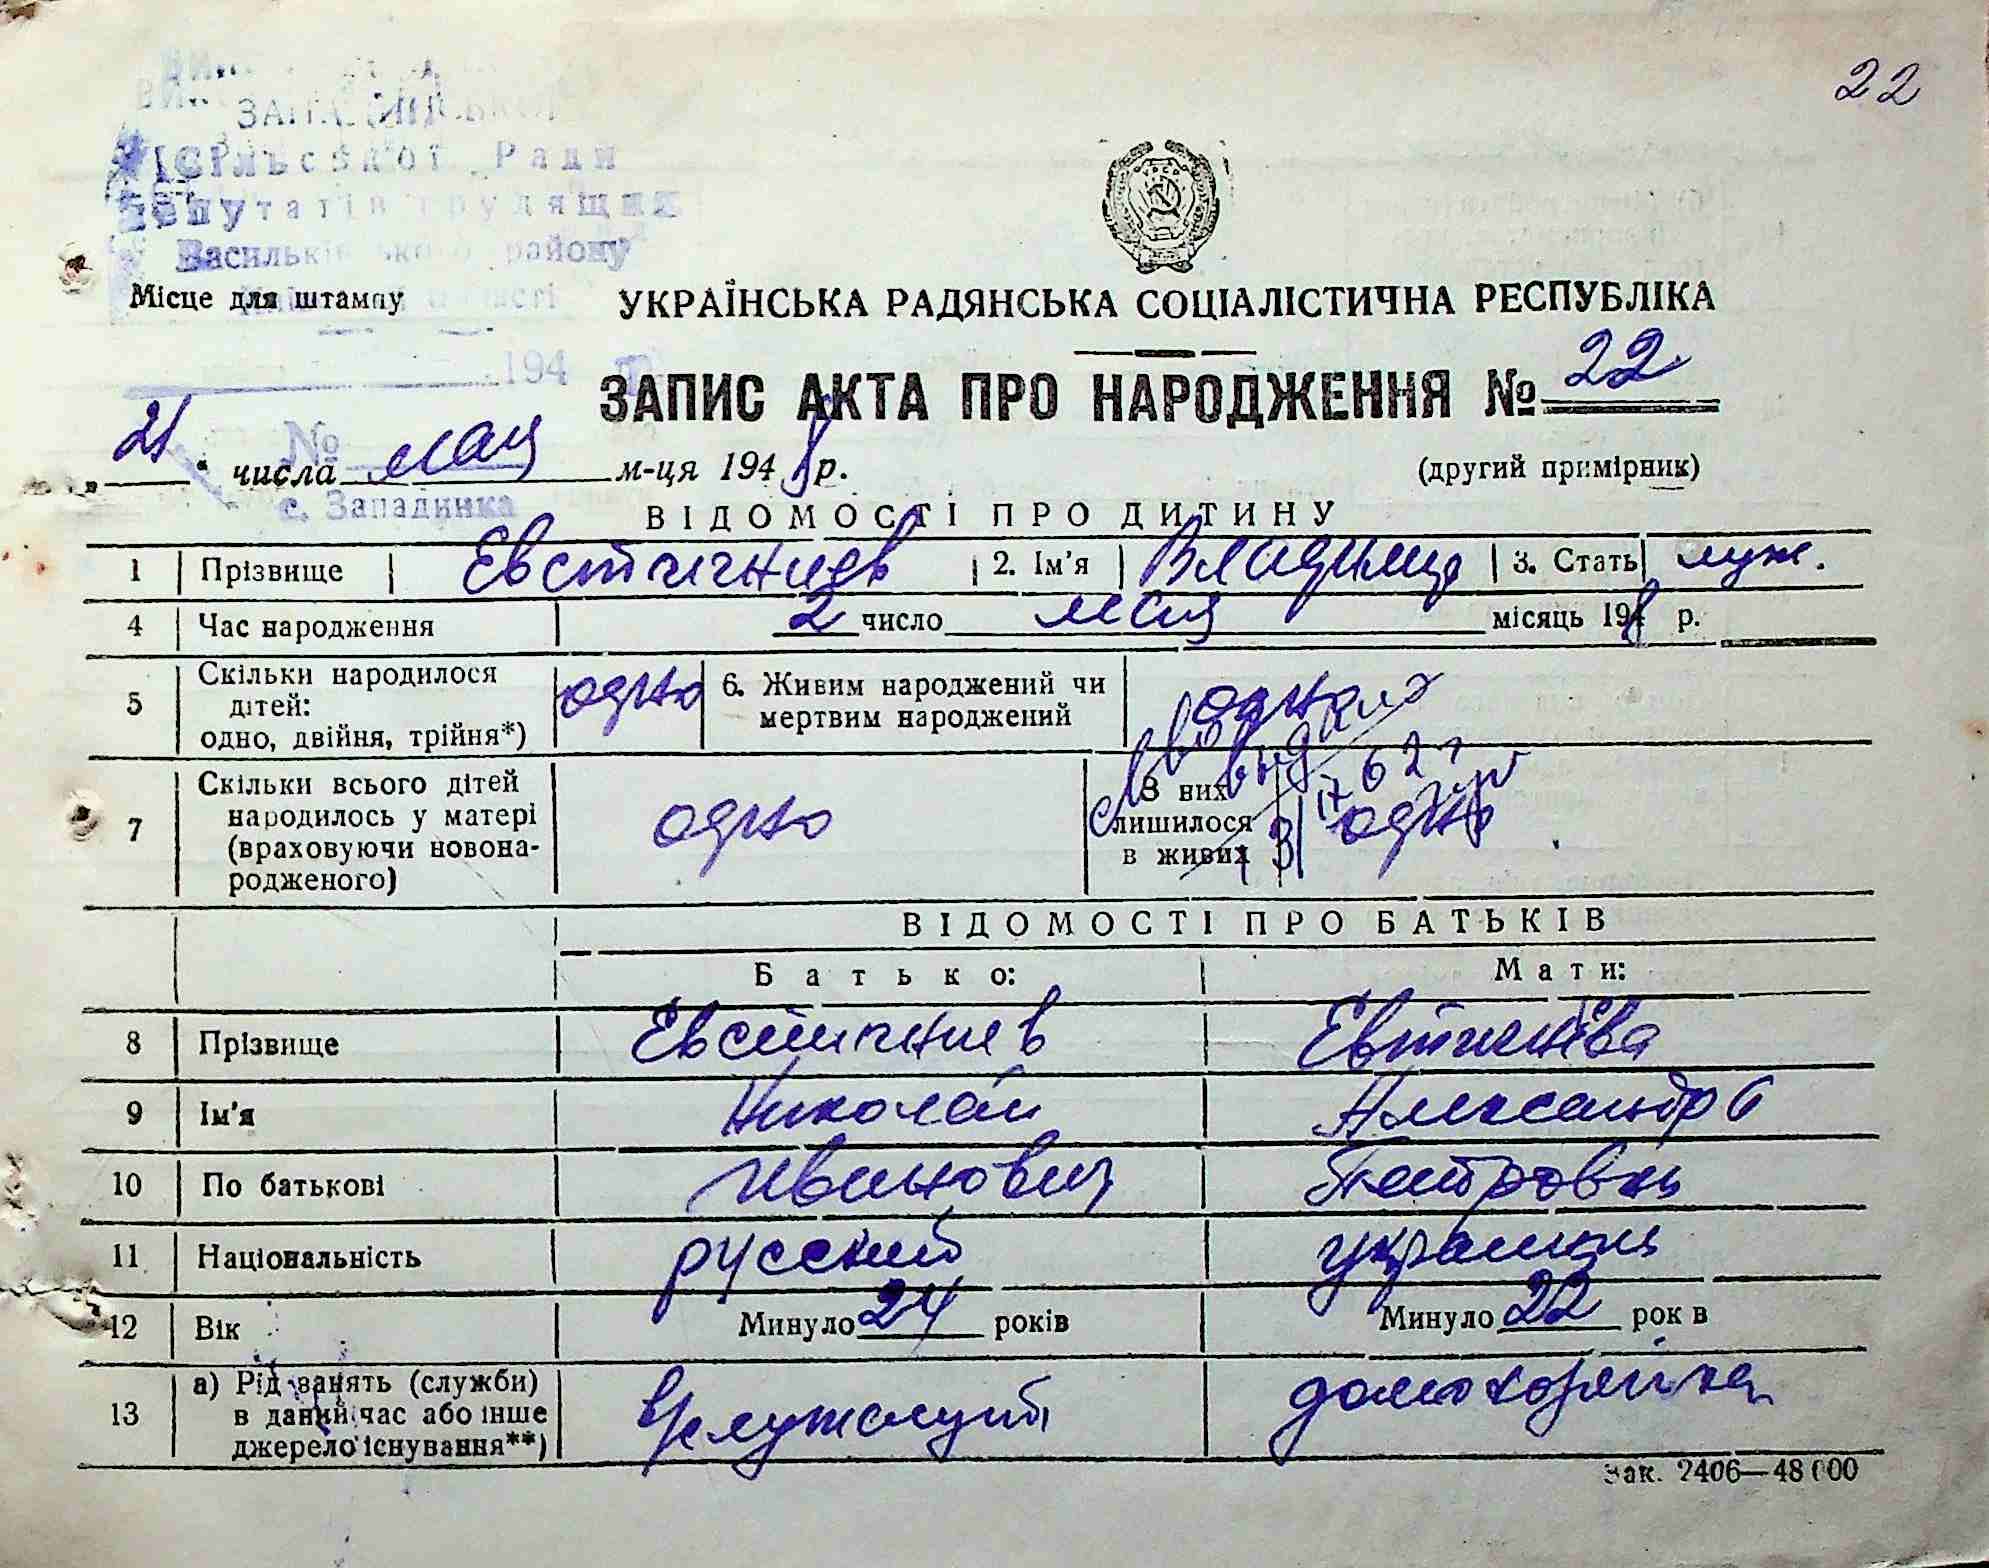 22
Сільської Ради
депутатів трудящих
Васильківського району
Місце для штампу
УКРАЇНСЬКА РАДЯНСЬКА СОЦІАЛІСТИЧНА РЕСПУБЛІКА
194
ЗАПИС АКТА ПРО НАРОДЖЕННЯ № 22
№
„21“ числа мая м-ця 1948 р. (другий примірник)
с. Западинка
ВІДОМОСТІ ПРО ДИТИНУ
1 Прізвище Евстигниев 2. Ім'я Владимир 3. Стать муж.
4 Час народження 2 число мая місяць 1948 р.
5 Скільки народилося дітей: одно, двійня, трійня*) одно 6. Живим народжений чи мертвим народжений
7 Скільки всього дітей народилось у матері (враховуючи новонародженого) одно З них лишилося в живих одно
ВІДОМОСТІ ПРО БАТЬКІВ
Батько: Мати:
8 Прізвище Евстигниев Евтигнева
9 Ім'я Николай Александра
10 По батькові Иванович
11 Національність русский
12 Вік Минуло 24 років Минуло 22 рок в
13 а) Рід занять (служби) в даний час або інше джерело існування**) домохозяйка
Зак. 2406—48000